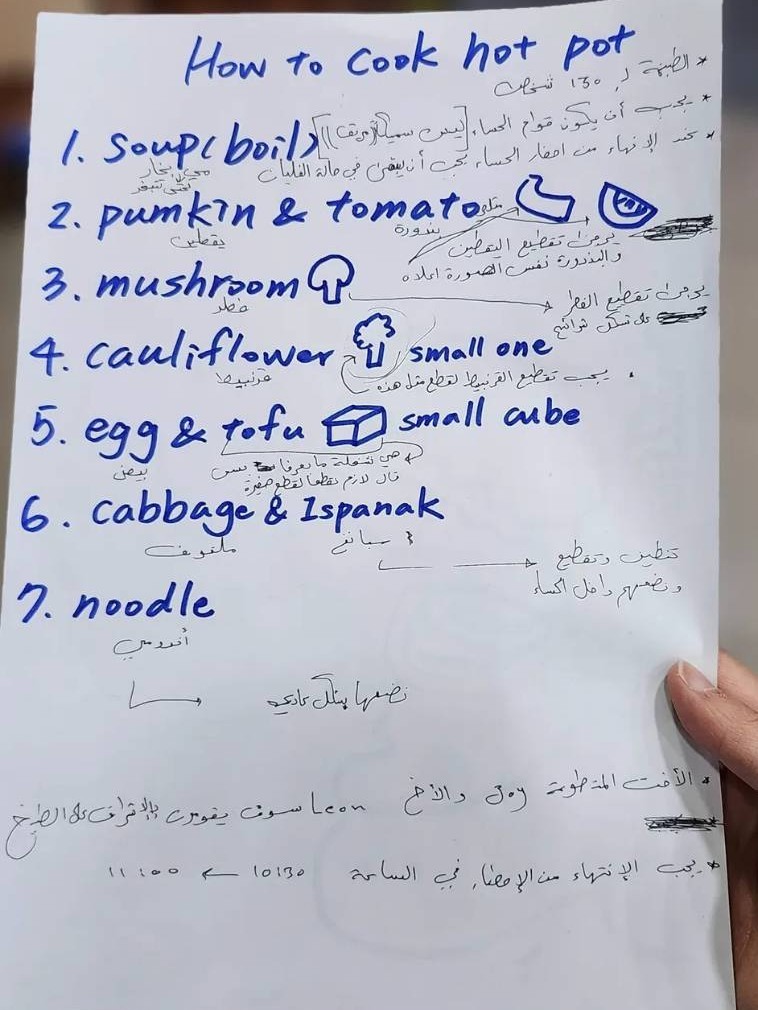 How to cook hot pot
* الطبخة لـ 130 شخص
* يجب أن يكون قوام الحساء [ليس سميكاً (مرقة)]
1. soup (boil)
* عند الإنهاء من احضار الحساء يجب أن يبقى في حالة الغليان
2. pumkin & tomato
يقطين
بندورة
يرجى تقطيع اليقطين
والبندورة نفس الصورة اعلاه
3. mushroom
فطر
يرجى تقطيع الفطر
على شكل شرائح
4. cauliflower small one
قرنبيط
يجب تقطيع القرنبيط لقطع مثل هذه
5. egg & tofu small cube
بيض
هي شغلة ما بعرفا بس
قال لازم نقطعا لقطع صغيرة
6. cabbage & Ispanak
ملفوف
سبانخ
تنظيف وتقطيع
ونضعهم داخل الحساء
7. noodle
أندومي
نضعها بشكل عادي
* الأخت المتطوعة Joy والأخ Leon سوف يقومون بالإشراف على الطبخ
* يجب الإنتهاء من الإحضار في الساعة 10:30 ← 11:00